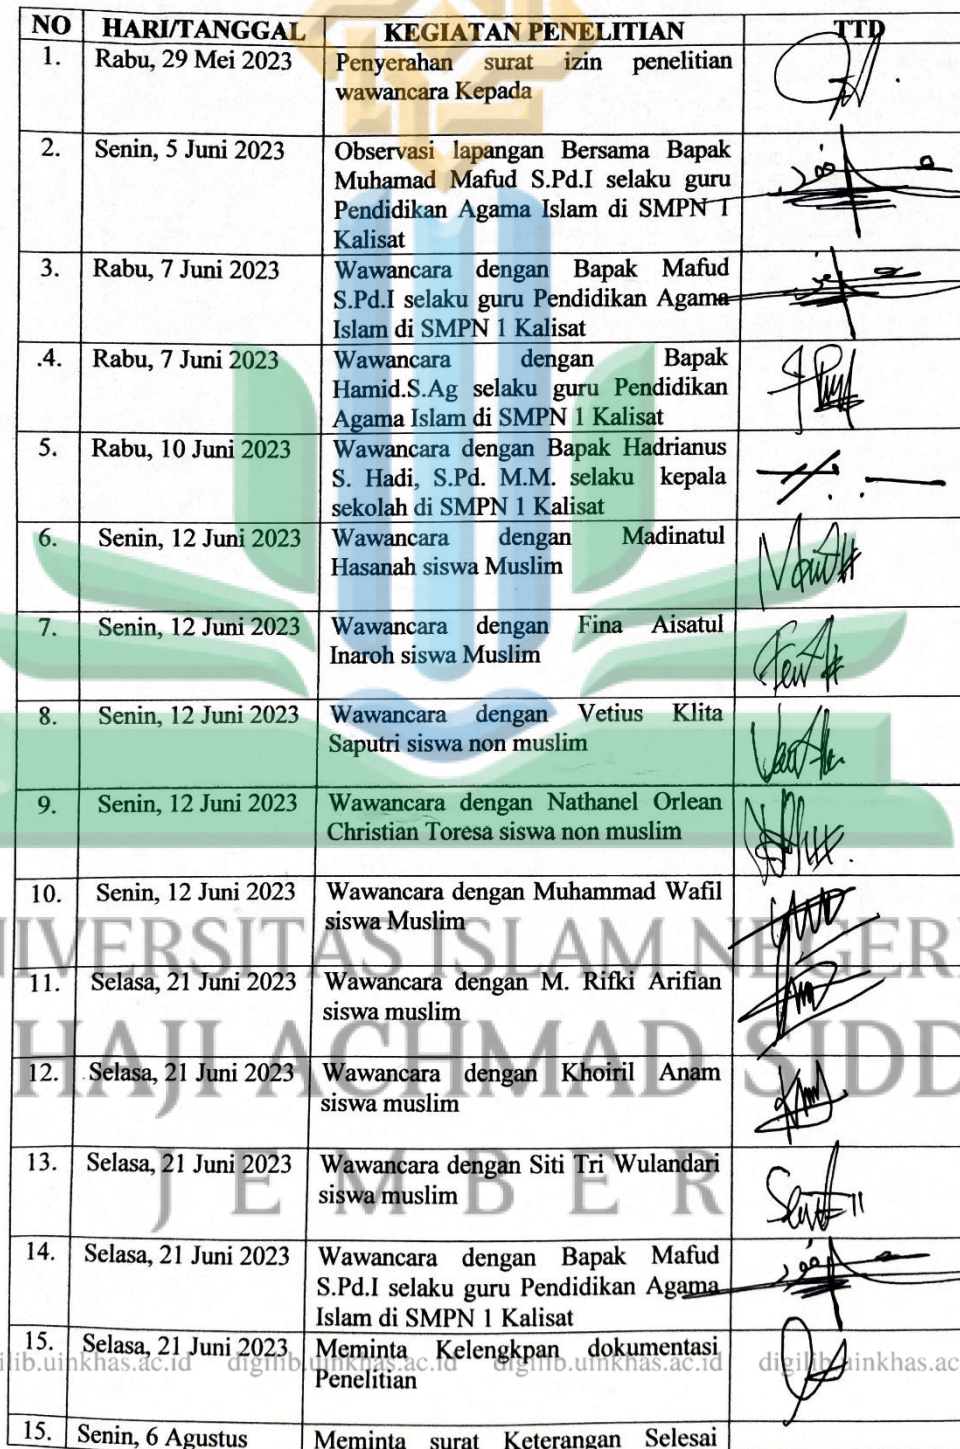 NO HARI/TANGGAL KEGIATAN PENELITIAN TTD
1. Rabu, 29 Mei 2023 Penyerahan surat izin penelitian
wawancara Kepada
2. Senin, 5 Juni 2023 Observasi lapangan Bersama Bapak
Muhamad Mafud S.Pd.I selaku guru
Pendidikan Agama Islam di SMPN 1
Kalisat
3. Rabu, 7 Juni 2023 Wawancara dengan Bapak Mafud
S.Pd.I selaku guru Pendidikan Agama
Islam di SMPN 1 Kalisat
.4. Rabu, 7 Juni 2023 Wawancara dengan Bapak
Hamid.S.Ag selaku guru Pendidikan
Agama Islam di SMPN 1 Kalisat
5. Rabu, 10 Juni 2023 Wawancara dengan Bapak Hadrianus
S. Hadi, S.Pd. M.M. selaku kepala
sekolah di SMPN 1 Kalisat
6. Senin, 12 Juni 2023 Wawancara dengan Madinatul
Hasanah siswa Muslim
7. Senin, 12 Juni 2023 Wawancara dengan Fina Aisatul
Inaroh siswa Muslim
8. Senin, 12 Juni 2023 Wawancara dengan Vetius Klita
Saputri siswa non muslim
9. Senin, 12 Juni 2023 Wawancara dengan Nathanel Orlean
Christian Toresa siswa non muslim
10. Senin, 12 Juni 2023 Wawancara dengan Muhammad Wafil
siswa Muslim
NIVERSITAS ISLAM NEGERI
11. Selasa, 21 Juni 2023 Wawancara dengan M. Rifki Arifian
siswa muslim
HAJI ACHMAD SIDD
12. Selasa, 21 Juni 2023 Wawancara dengan Khoiril Anam
siswa muslim
13. Selasa, 21 Juni 2023 Wawancara dengan Siti Tri Wulandari
siswa muslim
JEMBER
14. Selasa, 21 Juni 2023 Wawancara dengan Bapak Mafud
S.Pd.I selaku guru Pendidikan Agama
Islam di SMPN 1 Kalisat
15. Selasa, 21 Juni 2023 Meminta Kelengkpan dokumentasi
Penelitian
ilib.uinkhas.ac.id digilib.uinkhas.ac.id digilib.uinkhas.ac.id digilib.uinkhas.ac
15. Senin, 6 Agustus Meminta surat Keterangan Selesai